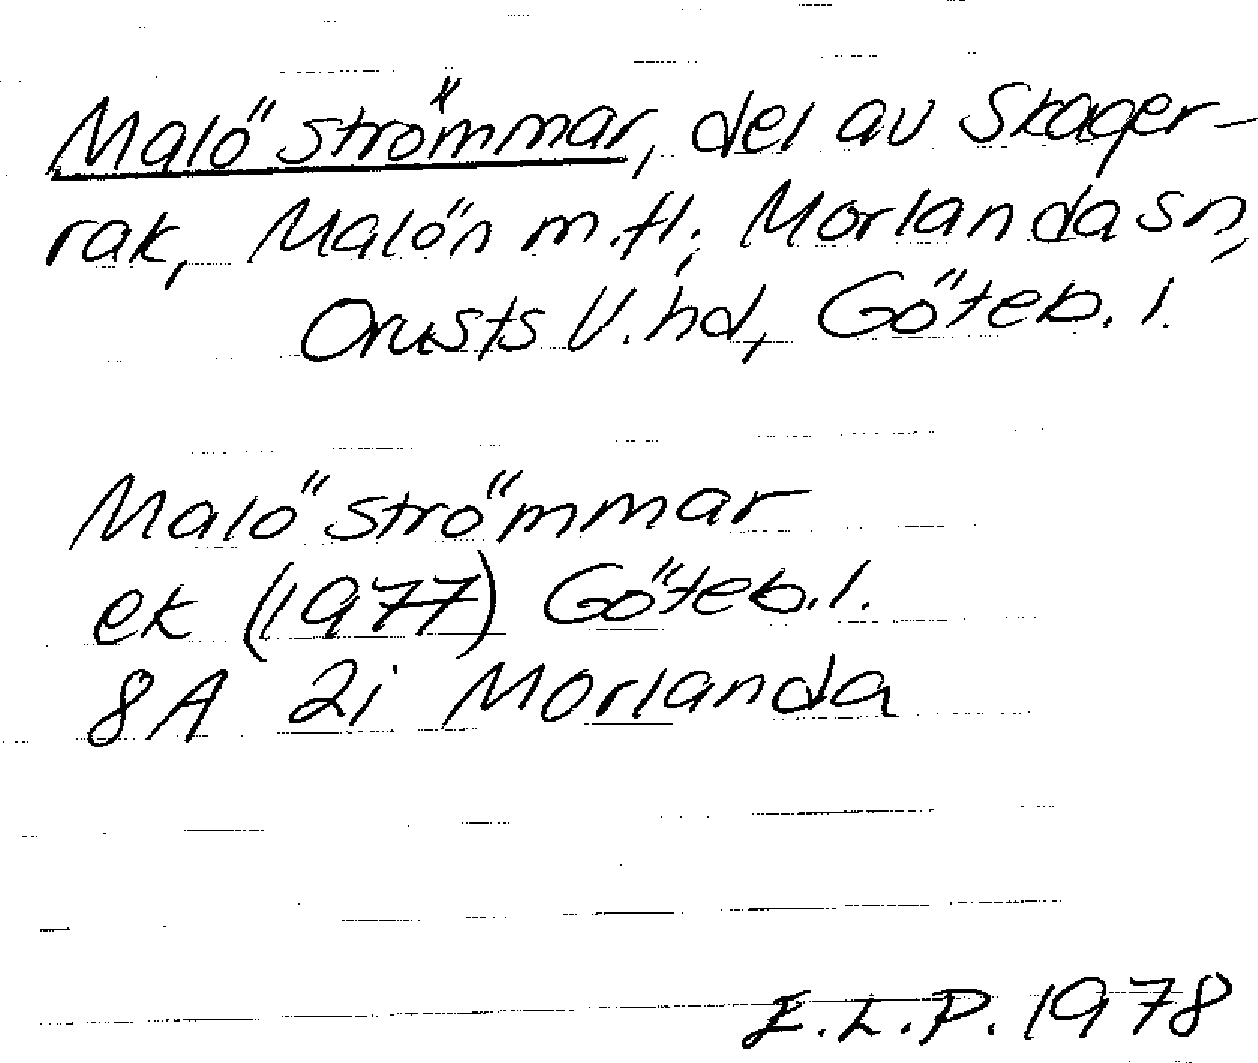 Malö strömmar, del av Skager-
rak, Malön m.fl., Morlanda sn,
Orusts V. hd, Göteb. l.
Malö strömmar
ek (1977) Göteb. l.
8A 2i Morlanda
E.L.P. 1978